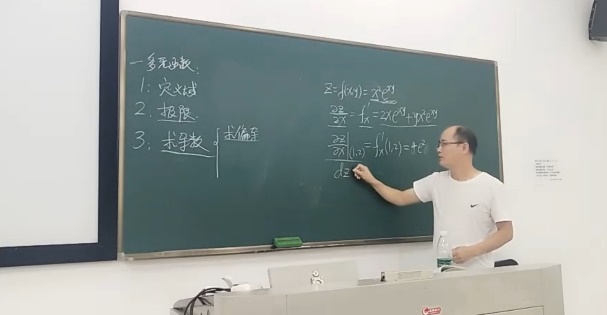 一 多元函数:
1: 定义域
2. 极限.
3: 求导数 { 求偏导
z=f(x,y)=x²e^{xy}
∂z/∂x = f'ₓ = 2xe^{xy}+yx²e^{xy}
∂z/∂x|(1,2) = f'ₓ(1,2) = 4e²
dz